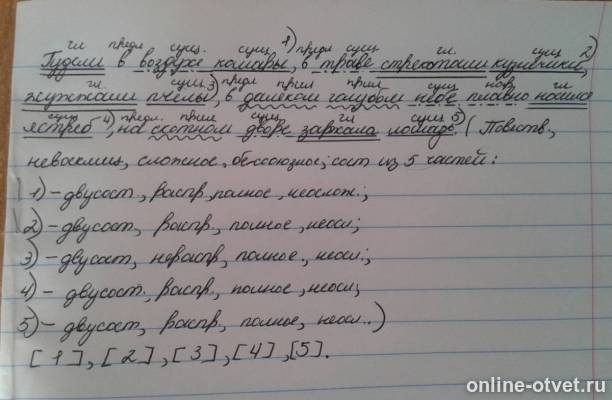 гл предл сущ. сущ 1) предл сущ гл. сущ 2)
Гудели в воздухе комары, в траве стрекотали кузнечики,
гл. сущ 3) предл прил прил сущ нар гл
жужжали пчёлы, в далёком голубом небе плавно носился
сущ 4) предл. прил сущ. гл сущ 5)
ястреб, на скотном дворе заржала лошадь. (Повеств,
невосклиц, сложное, бессоюзное; сост из 5 частей:
1) – двусост, распр, полное, неослож.;
2) – двусост, распр, полное, неосл;
3) – двусост, нераспр, полное, неосл;
4) – двусост, распр, полное, неосл;
5) – двусост, распр, полное, неосл..)
[1], [2], [3], [4], [5].
online-otvet.ru